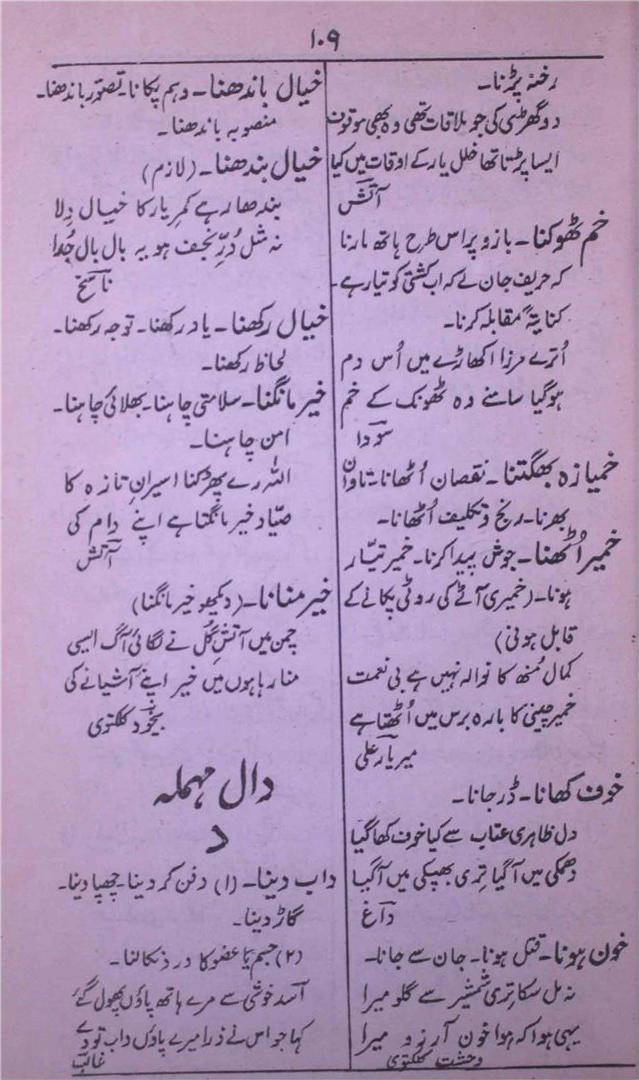 ۱۰۹
رخنہ پڑنا۔
دو گھڑی کی جو ملاقات تھی وہ بھی موقوف
ایسا پڑتا تھا خلل یار کے اوقات میں کیا
آتش
خم ٹھوکنا۔ بازو پر اس طرح ہاتھ مارنا
کہ حریف جان لے کہ اب کشتی کو تیار ہے۔
کنایتہً مقابلہ کرنا۔
اُترے مرزا اکھاڑے میں اُس دم
ہوگیا سامنے وہ ٹھونک کے خم
سودا
خمیازہ بھگتنا۔ نقصان اُٹھانا۔ تاوان
بھرنا۔ رنج و تکلیف اُٹھانا۔
خمیر اُٹھنا۔ جوش پیدا کرنا۔ خمیر تیّار
ہونا۔ (خمیری آٹے کی روٹی پکانے کے
قابل ہونی)
کمال مُنھ کا نوالہ نہیں ہے بی نعمت
خمیر چینی کا بارہ برس میں اُٹھتا ہے
میر یار علی
خوف کھانا۔ ڈر جانا۔
دل ظاہری عتاب سے کیا خوف کھا گیا
دھمکی میں آگیا تری بھپکی میں آگیا
داغ
خون ہونا۔ قتل ہونا۔ جان سے جانا۔
نہ مل سکا تری شمشیر سے گلو میرا
یہی ہوا کہ ہوا خون آرزو میرا
وحشت کلکتوی
خیال باندھنا۔ وہم پکانا۔ تصور باندھنا۔
منصوبہ باندھنا۔
خیال بندھنا۔ (لازم)
بندھا رہے کمرِ یار کا خیال دِلا
نہ مثل دُرِّ نجف ہو یہ بال بال جُدا
ناسخ
خیال رکھنا۔ یاد رکھنا۔ توجہ رکھنا۔
لحاظ رکھنا۔
خیر مانگنا۔ سلامتی چاہنا۔ بھلائی چاہنا۔
امن چاہنا۔
اللہ رے پھڑکنا اسیرانِ تازہ کا
صیّاد خیر مانگتا ہے اپنے دام کی
آتش
خیر منانا۔ (دیکھو خیر مانگنا)
چمن میں آتشِ گُل نے لگائی آگ ایسی
منا رہا ہوں میں خیر اپنے آشیانے کی
بیخود کلکتوی
دال مہملہ
د
داب دینا۔ (۱) دفن کر دینا۔ چھپا دینا۔
گاڑ دینا۔
(۲) جسم یا عضو کا درد نکالنا۔
اسد خوشی سے مرے ہاتھ پاؤں پھول گئے
کہا جو اس نے ذرا میرے پاؤں داب تو دے
غالب